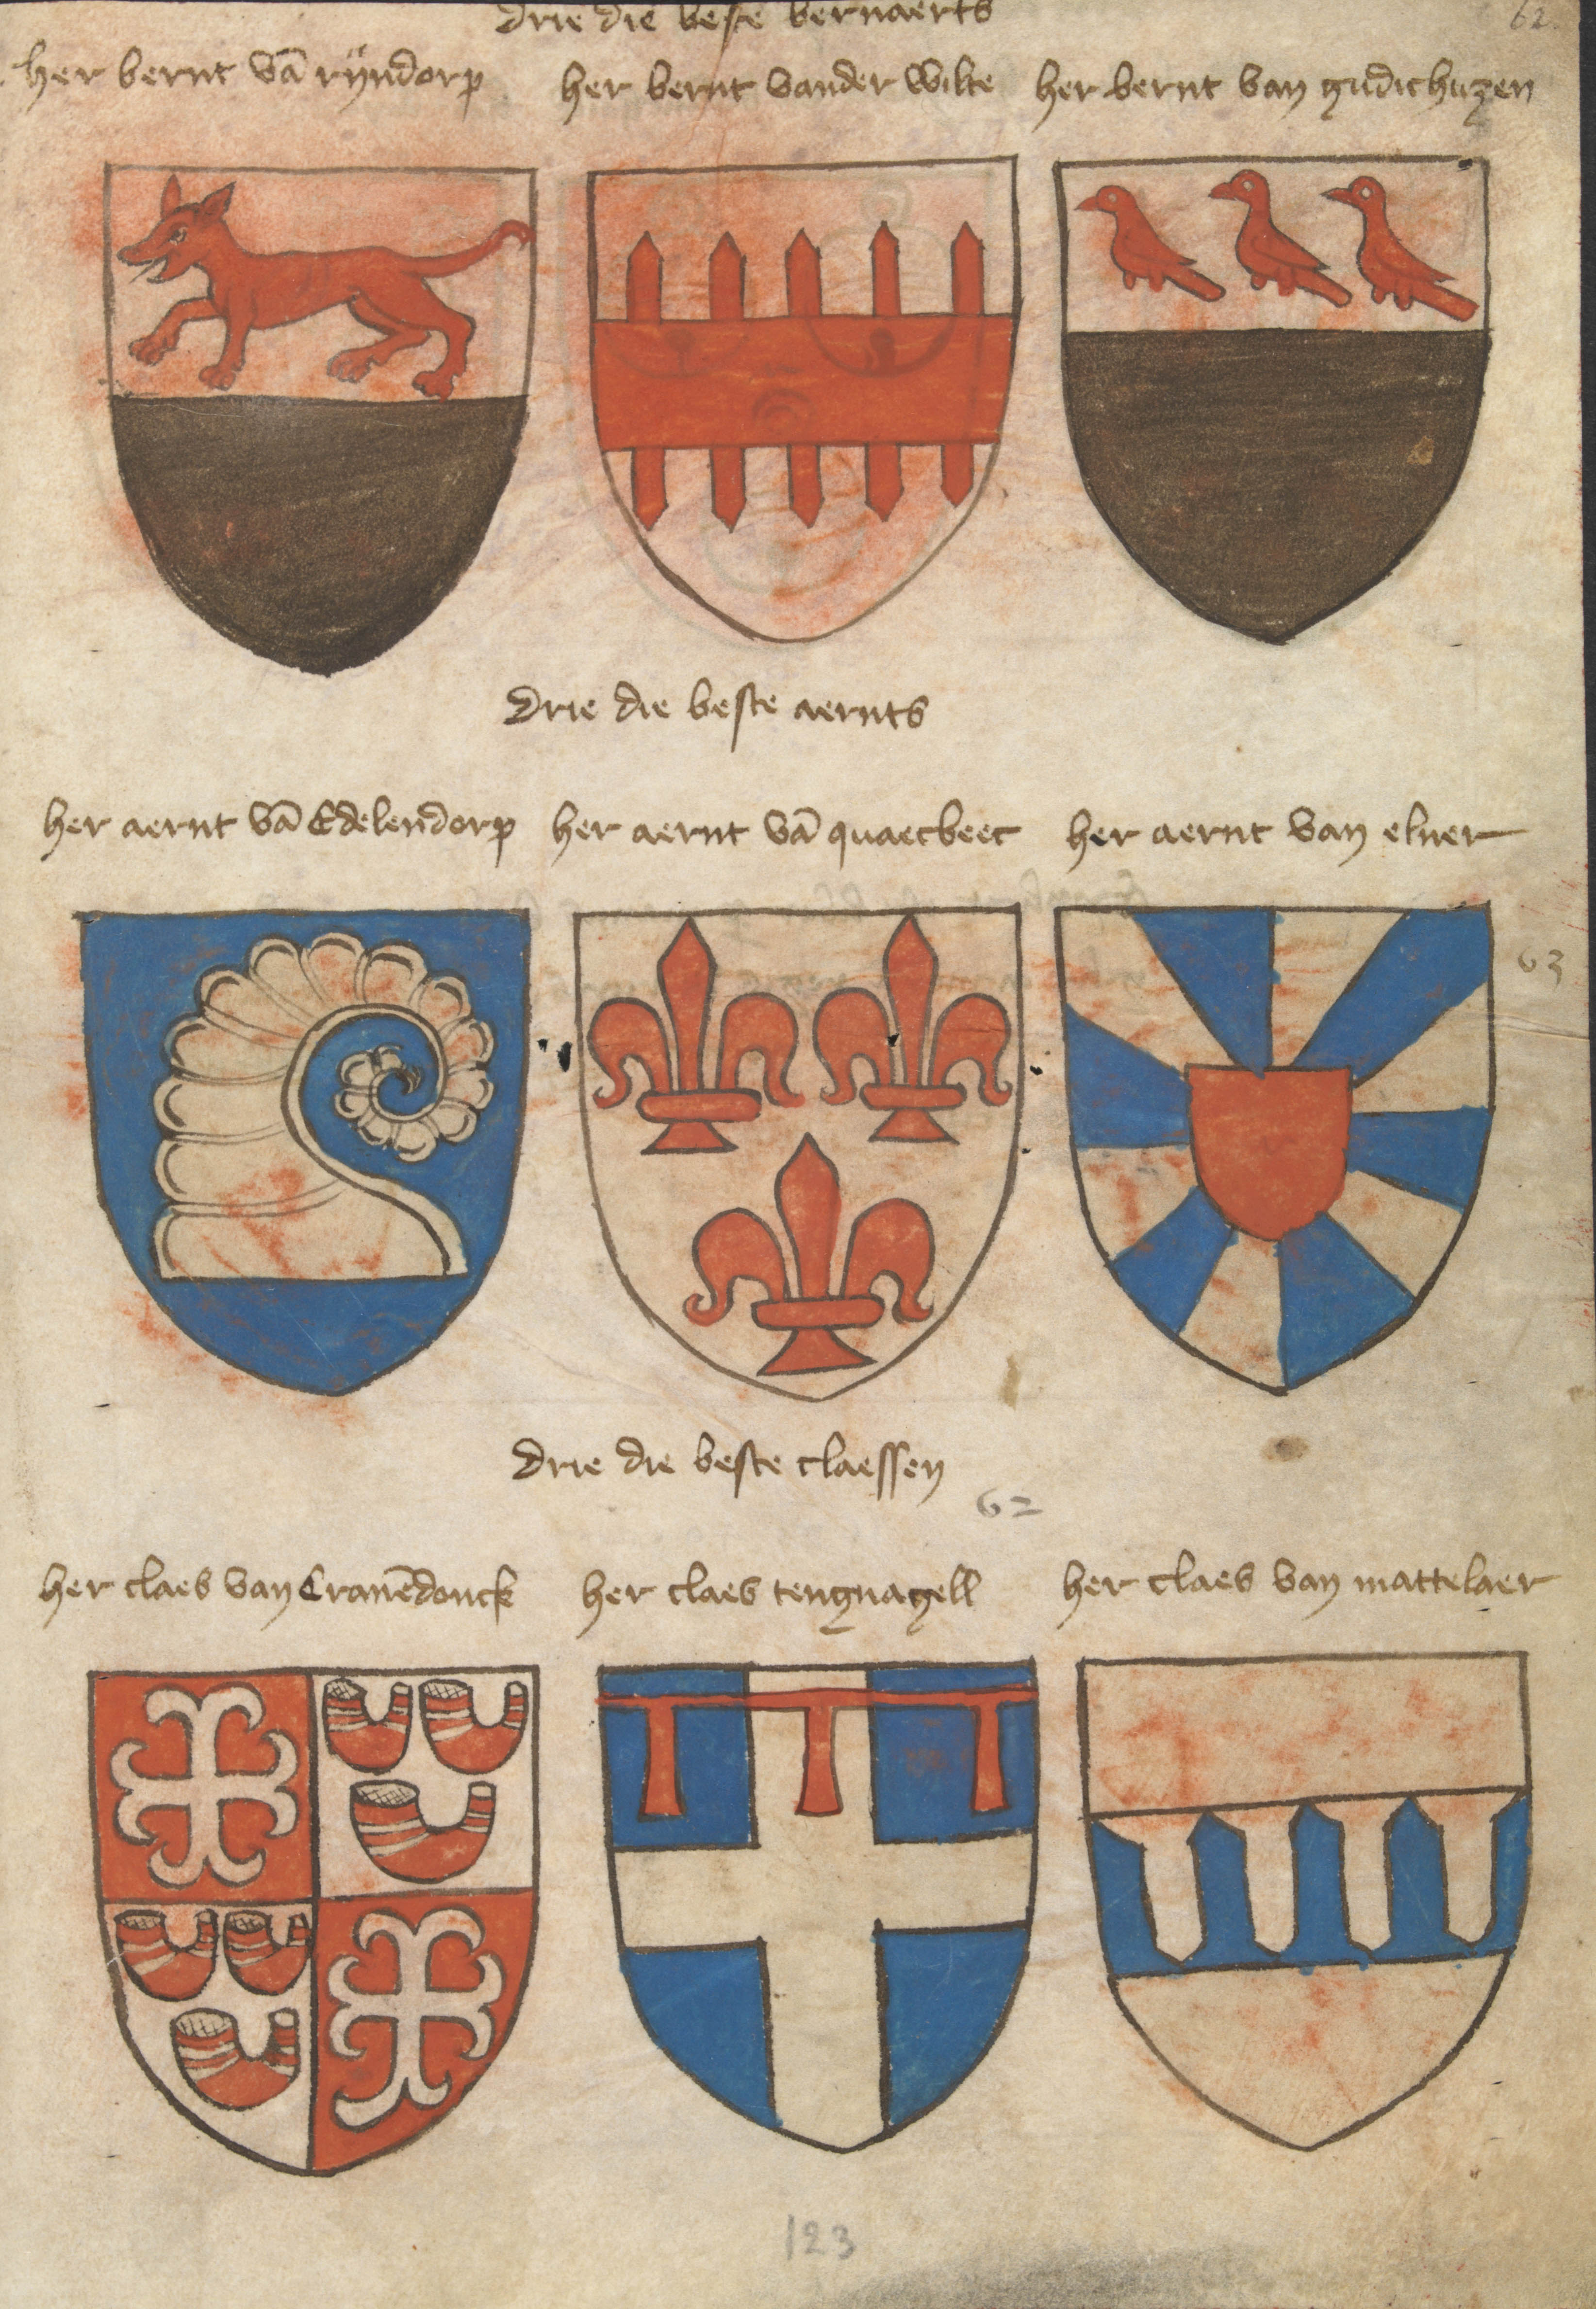 drie die beste bernaerts
62.
her bernt vā rÿndorp
her bernt vander wilte
her bernt van gudichuzen
drie die beste aernts
her aernt vā Edelendorp
her aernt vā quaecbeec
her aernt van elner
63
drie die beste claessen
62
her claes van Cranēdonck
her claes tengnagell
her claes van mattelaer
123